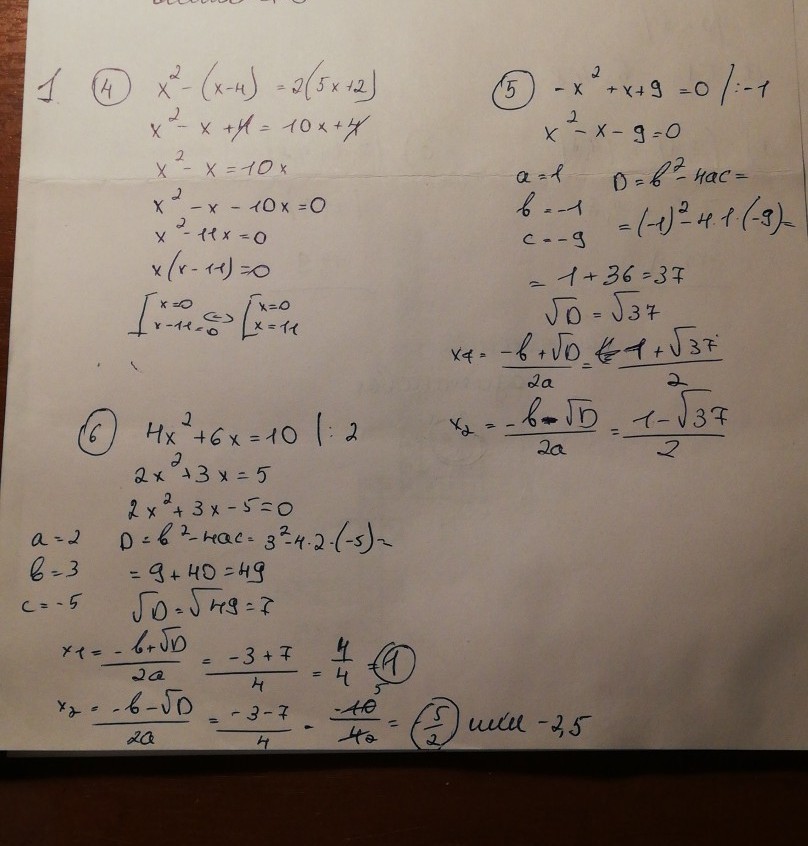 1. ④ x² - (x-4) = 2(5x+2)
x² - x + 4 = 10x + 4
x² - x = 10x
x² - x - 10x = 0
x² - 11x = 0
x(x - 11) = 0
[x=0 <=> [x=0
x-11=0 x=11
⑤ -x² + x + 9 = 0 /:-1
x² - x - 9 = 0
a = 1 D = b² - 4ac =
b = -1 = (-1)² - 4·1·(-9) =
c = -9
= 1 + 36 = 37
√D = √37
x1 = (-b + √D)/2a = (1 + √37)/2
x2 = (-b - √D)/2a = (1 - √37)/2
⑥ 4x² + 6x = 10 |: 2
2x² + 3x = 5
2x² + 3x - 5 = 0
a = 2 D = b² - 4ac = 3² - 4·2·(-5) =
b = 3 = 9 + 40 = 49
c = -5 √D = √49 = 7
x1 = (-b + √D)/2a = (-3 + 7)/4 = 4/4 = 1
x2 = (-b - √D)/2a = (-3 - 7)/4 = -10/4 = -5/2 или -2,5